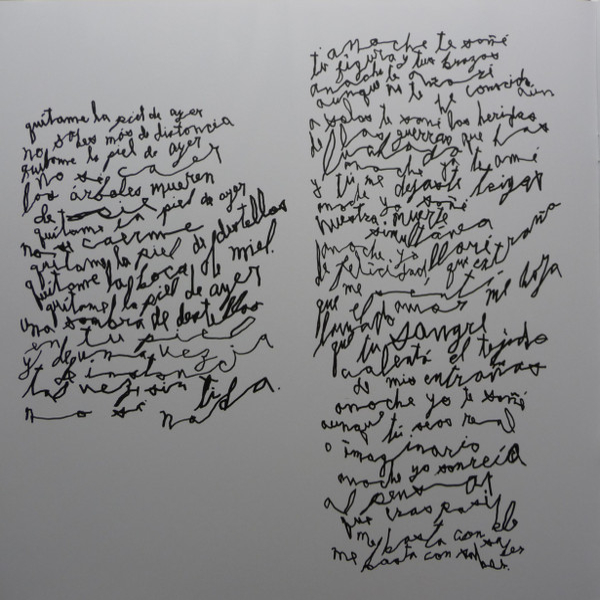 quitame la piel de ayer
no sabes más de distancia
quitame la piel de ayer
no sé caer
los árboles mueren
de pie
quitame la piel de ayer
no sé caerme
quitame la piel de destellos
quitame la boca de miel
quitame la piel de ayer
una sombra de destellos
en tu piel
y de una vez
distancia
tal vez sin ti
no sé nada.
anoche te soñé
tu figura y tus brazos
anoche te
aunque no te he conocido aún
a solas te soñé las heridas
de las guerras que has
luchado
anoche yo te amé
y tú me dejaste
anoche yo soñé
nuestra muerte
simultánea
anoche yo lloré
de felicidad, qué extraño
me sentí
que el amor me
llamaba
que tu sangre
calentó el tejado
de mis entrañas
anoche yo te soñé
aunque tú seas real
o imaginario
anoche yo sonreía
al pensar
que eras
me basta con
me basta con